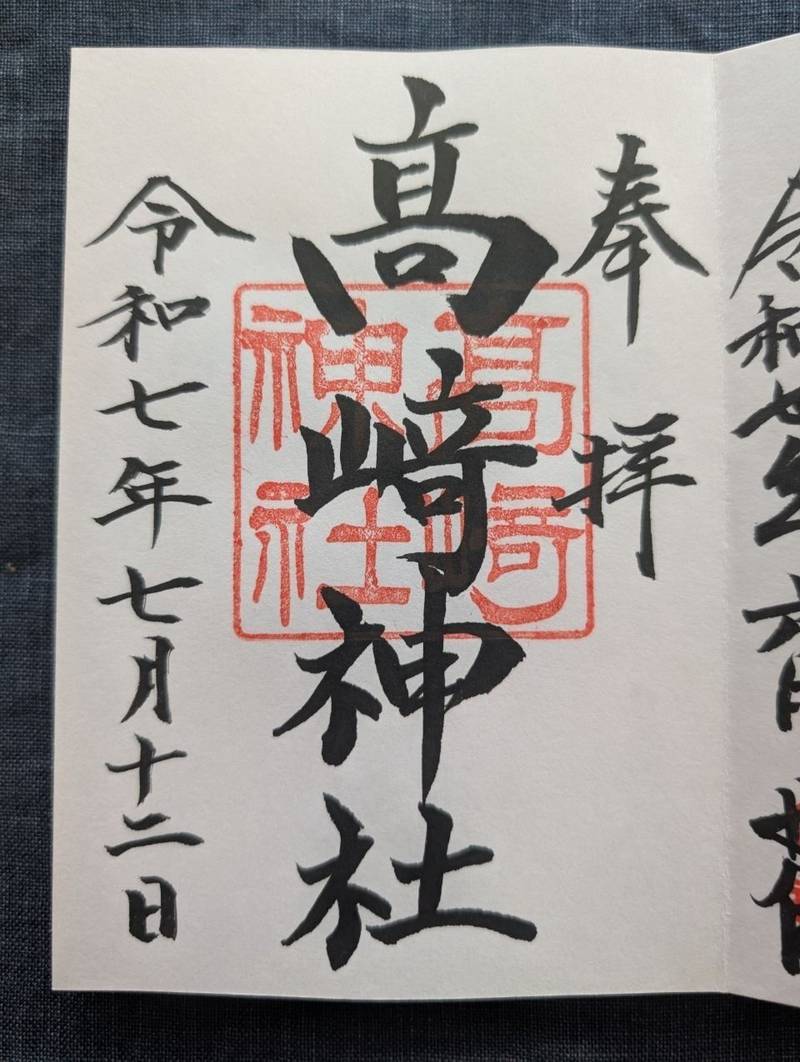 奉拝
髙﨑神社
髙﨑
神社
令和七年七月十二日